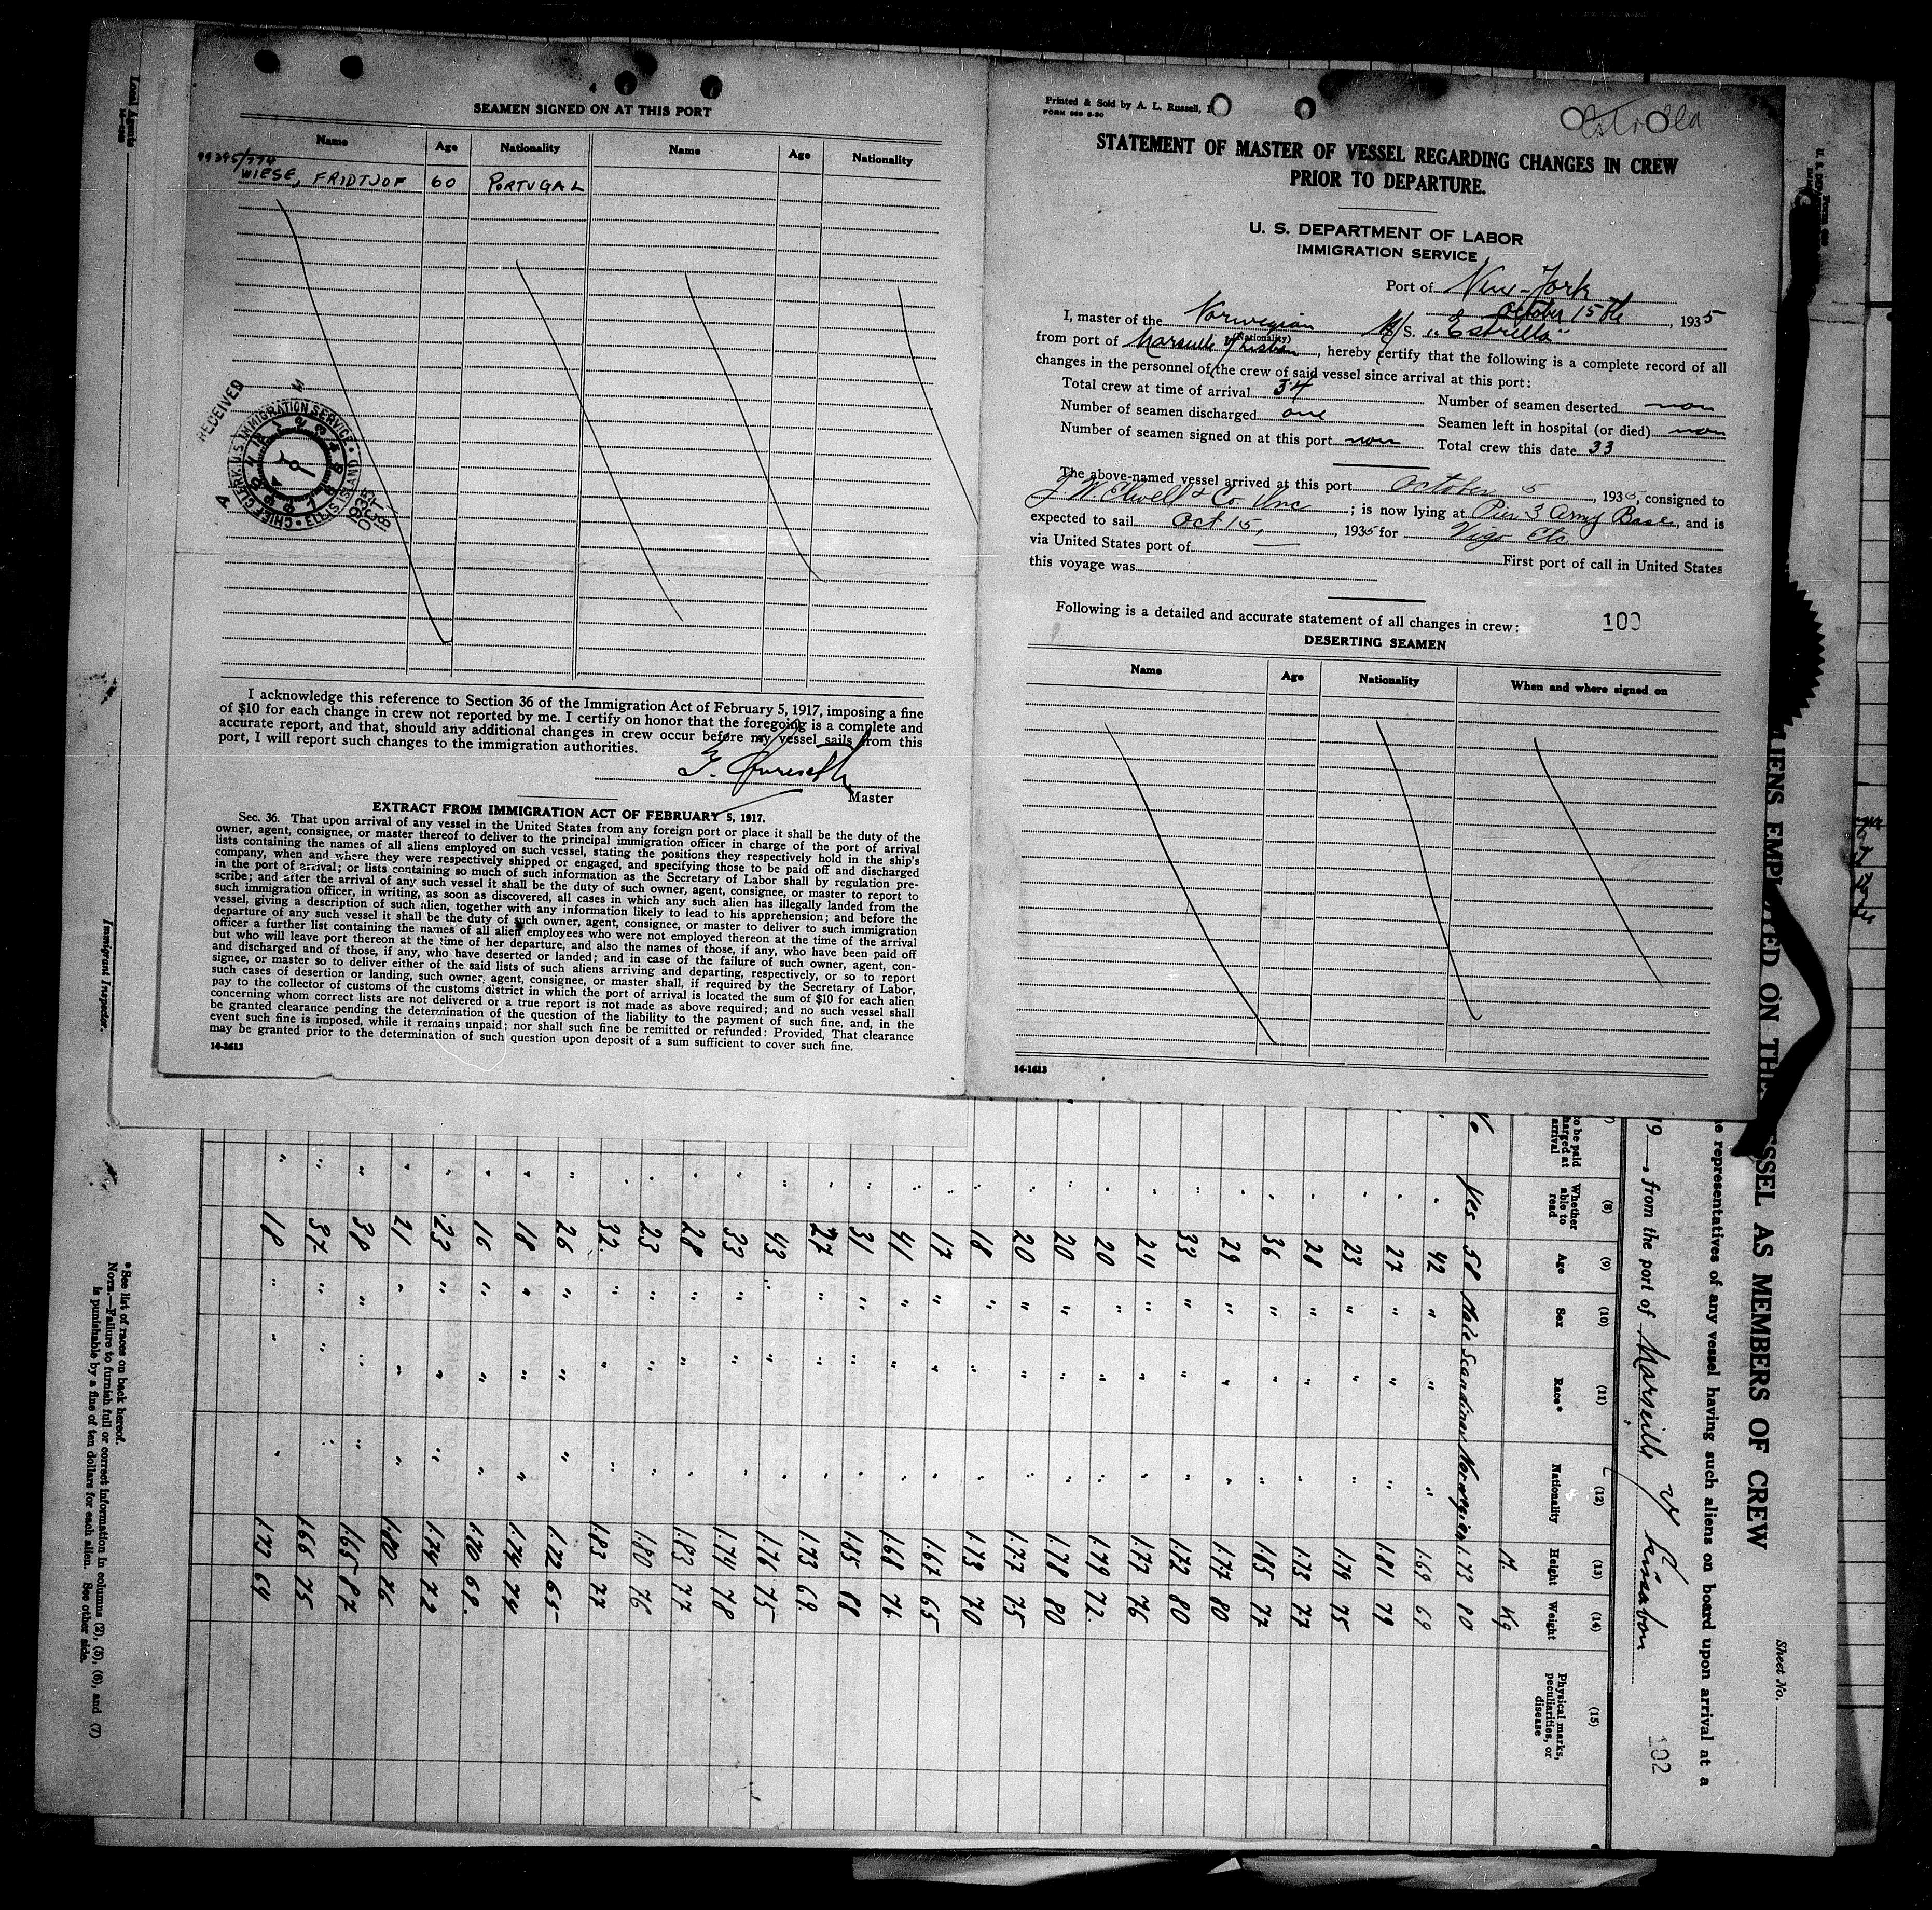 4
SEAMEN SIGNED ON AT THIS PORT
Name Age Nationality Name Age Nationality
99395/774
WIESE, FRIDTJOF 60 PORTUGAL
RECEIVED
CHIEF CLERK U.S. IMMIGRATION SERVICE ELLIS ISLAND
I acknowledge this reference to Section 36 of the Immigration Act of February 5, 1917, imposing a fine
of $10 for each change in crew not reported by me. I certify on honor that the foregoing is a complete and
accurate report, and that, should any additional changes in crew occur before my vessel sails from this
port, I will report such changes to the immigration authorities.
Master
EXTRACT FROM IMMIGRATION ACT OF FEBRUARY 5, 1917.
Sec. 36. That upon arrival of any vessel in the United States from any foreign port or place it shall be the duty of the
owner, agent, consignee, or master thereof to deliver to the principal immigration officer in charge of the port of arrival
lists containing the names of all aliens employed on such vessel, stating the positions they respectively hold in the ship's
company, when and where they were respectively shipped or engaged, and specifying those to be paid off and discharged
in the port of arrival; or lists containing so much of such information as the Secretary of Labor shall by regulation pre-
scribe; and after the arrival of any such vessel it shall be the duty of such owner, agent, consignee, or master to report to
such immigration officer, in writing, as soon as discovered, all cases in which any such alien has illegally landed from the
vessel, giving a description of such alien, together with any information likely to lead to his apprehension; and before the
departure of any such vessel it shall be the duty of such owner, agent, consignee, or master to deliver to such immigration
officer a further list containing the names of all alien employees who were not employed thereon at the time of the arrival
but who will leave port thereon at the time of her departure, and also the names of those, if any, who have been paid off
and discharged and of those, if any, who have deserted or landed; and in case of the failure of such owner, agent, con-
signee, or master so to deliver either of the said lists of such aliens arriving and departing, respectively, or so to report
such cases of desertion or landing, such owner, agent, consignee, or master shall, if required by the Secretary of Labor,
pay to the collector of customs of the customs district in which the port of arrival is located the sum of $10 for each alien
concerning whom correct lists are not delivered or a true report is not made as above required; and no such vessel shall
be granted clearance pending the determination of the question of the liability to the payment of such fine, and, in the
event such fine is imposed, while it remains unpaid; nor shall such fine be remitted or refunded: Provided, That clearance
may be granted prior to the determination of such question upon deposit of a sum sufficient to cover such fine.
14-1613
Printed & Sold by A. L. Russell,
FORM 689 8-30
Estrella
STATEMENT OF MASTER OF VESSEL REGARDING CHANGES IN CREW
PRIOR TO DEPARTURE.
U. S. DEPARTMENT OF LABOR
IMMIGRATION SERVICE
Port of New-York
October 15th, 1935
I, master of the Norwegian M/S. "Estrella"
(Nationality)
from port of Marseille v/ Lisbon, hereby certify that the following is a complete record of all
changes in the personnel of the crew of said vessel since arrival at this port:
Total crew at time of arrival 34 Number of seamen deserted non
Number of seamen discharged one Seamen left in hospital (or died) non
Number of seamen signed on at this port non Total crew this date 33
The above-named vessel arrived at this port October 5, 1935, consigned to
J. W. Elwell & Co. Inc; is now lying at Pier 3 Army Base, and is
expected to sail Oct 15, 1935 for Vigo Etc
via United States port of First port of call in United States
this voyage was
Following is a detailed and accurate statement of all changes in crew: 100
DESERTING SEAMEN
Name Age Nationality When and where signed on
14-1613
Local Agents
Immigrant Inspector.
SSEL AS MEMBERS OF CREW
Sheet No.
e representatives of any vessel having such aliens on board upon arrival at a
19 , from the port of Marseille v/ Lissabon
102
(8) (9) (10) (11) (12) (13) (14) (15)
to be paid
arrival
Whether able to read Age Sex Race* Nationality Height Weight Physical marks, peculiarities, or disease
M. Kg
No Yes 58 Male Scandinav Norwegian 1.73 80
" 42 " " " 1.69 69
" 27 " " " 1.81 79
" 23 " " " 1.79 75
" 28 " " " 1.73 77
" 36 " " " 1.85 77
" 29 " " " 1.77 80
" 33 " " " 1.72 80
" 24 " " " 1.77 76
" 20 " " " 1.79 72
" 20 " " " 1.78 80
" 20 " " " 1.77 75
" 18 " " " 1.73 70
" 17 " " " 1.67 65
" 41 " " " 1.68 76
" 31 " " " 1.85 88
" 27 " " " 1.73 69
" 43 " " " 1.76 75
" 23 " " " 1.74 78
" 28 " " " 1.83 77
" 23 " " " 1.80 76
" 32 " " " 1.83 77
" 26 " " " 1.72 65
" 18 " " " 1.74 74
" 16 " " " 1.70 62
" 23 " " " 1.74 72
" 21 " " " 1.70 76
" 38 " " " 1.65 87
" 37 " " " 1.66 75
" 18 " " " 1.73 64
* See list of races on back hereof.
NOTE.—Failure to furnish full or correct information in columns (2), (5), (6), and (7)
is punishable by a fine of ten dollars for each alien. See other side.